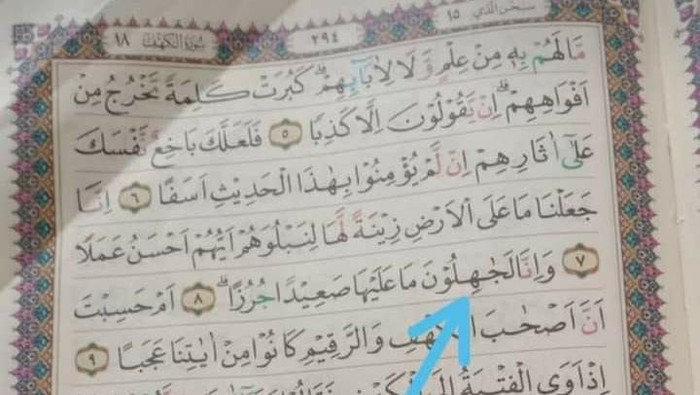 سبحن الذي ١٥ ٢٩٤ سُوْرَةُ الْكَهْف ١٨
مَا لَهُمْ بِهٖ مِنْ عِلْمٍ وَّلَا لِاٰبَاۤىِٕهِمْۗ كَبُرَتْ كَلِمَةً تَخْرُجُ مِنْ
اَفْوَاهِهِمْۗ اِنْ يَّقُوْلُوْنَ اِلَّا كَذِبًا ٥ فَلَعَلَّكَ بَاخِعٌ نَّفْسَكَ
عَلٰٓى اٰثَارِهِمْ اِنْ لَّمْ يُؤْمِنُوْا بِهٰذَا الْحَدِيْثِ اَسَفًا ٦ اِنَّا
جَعَلْنَا مَا عَلَى الْاَرْضِ زِيْنَةً لَّهَا لِنَبْلُوَهُمْ اَيُّهُمْ اَحْسَنُ عَمَلًا
٧ وَاِنَّا لَجٰهِلُوْنَ مَا عَلَيْهَا صَعِيْدًا جُرُزًاۗ ٨ اَمْ حَسِبْتَ
اَنَّ اَصْحٰبَ الْكَهْفِ وَالرَّقِيْمِ كَانُوْا مِنْ اٰيٰتِنَا عَجَبًا ٩
اِذْ اَوَى الْفِتْيَةُ اِلَى